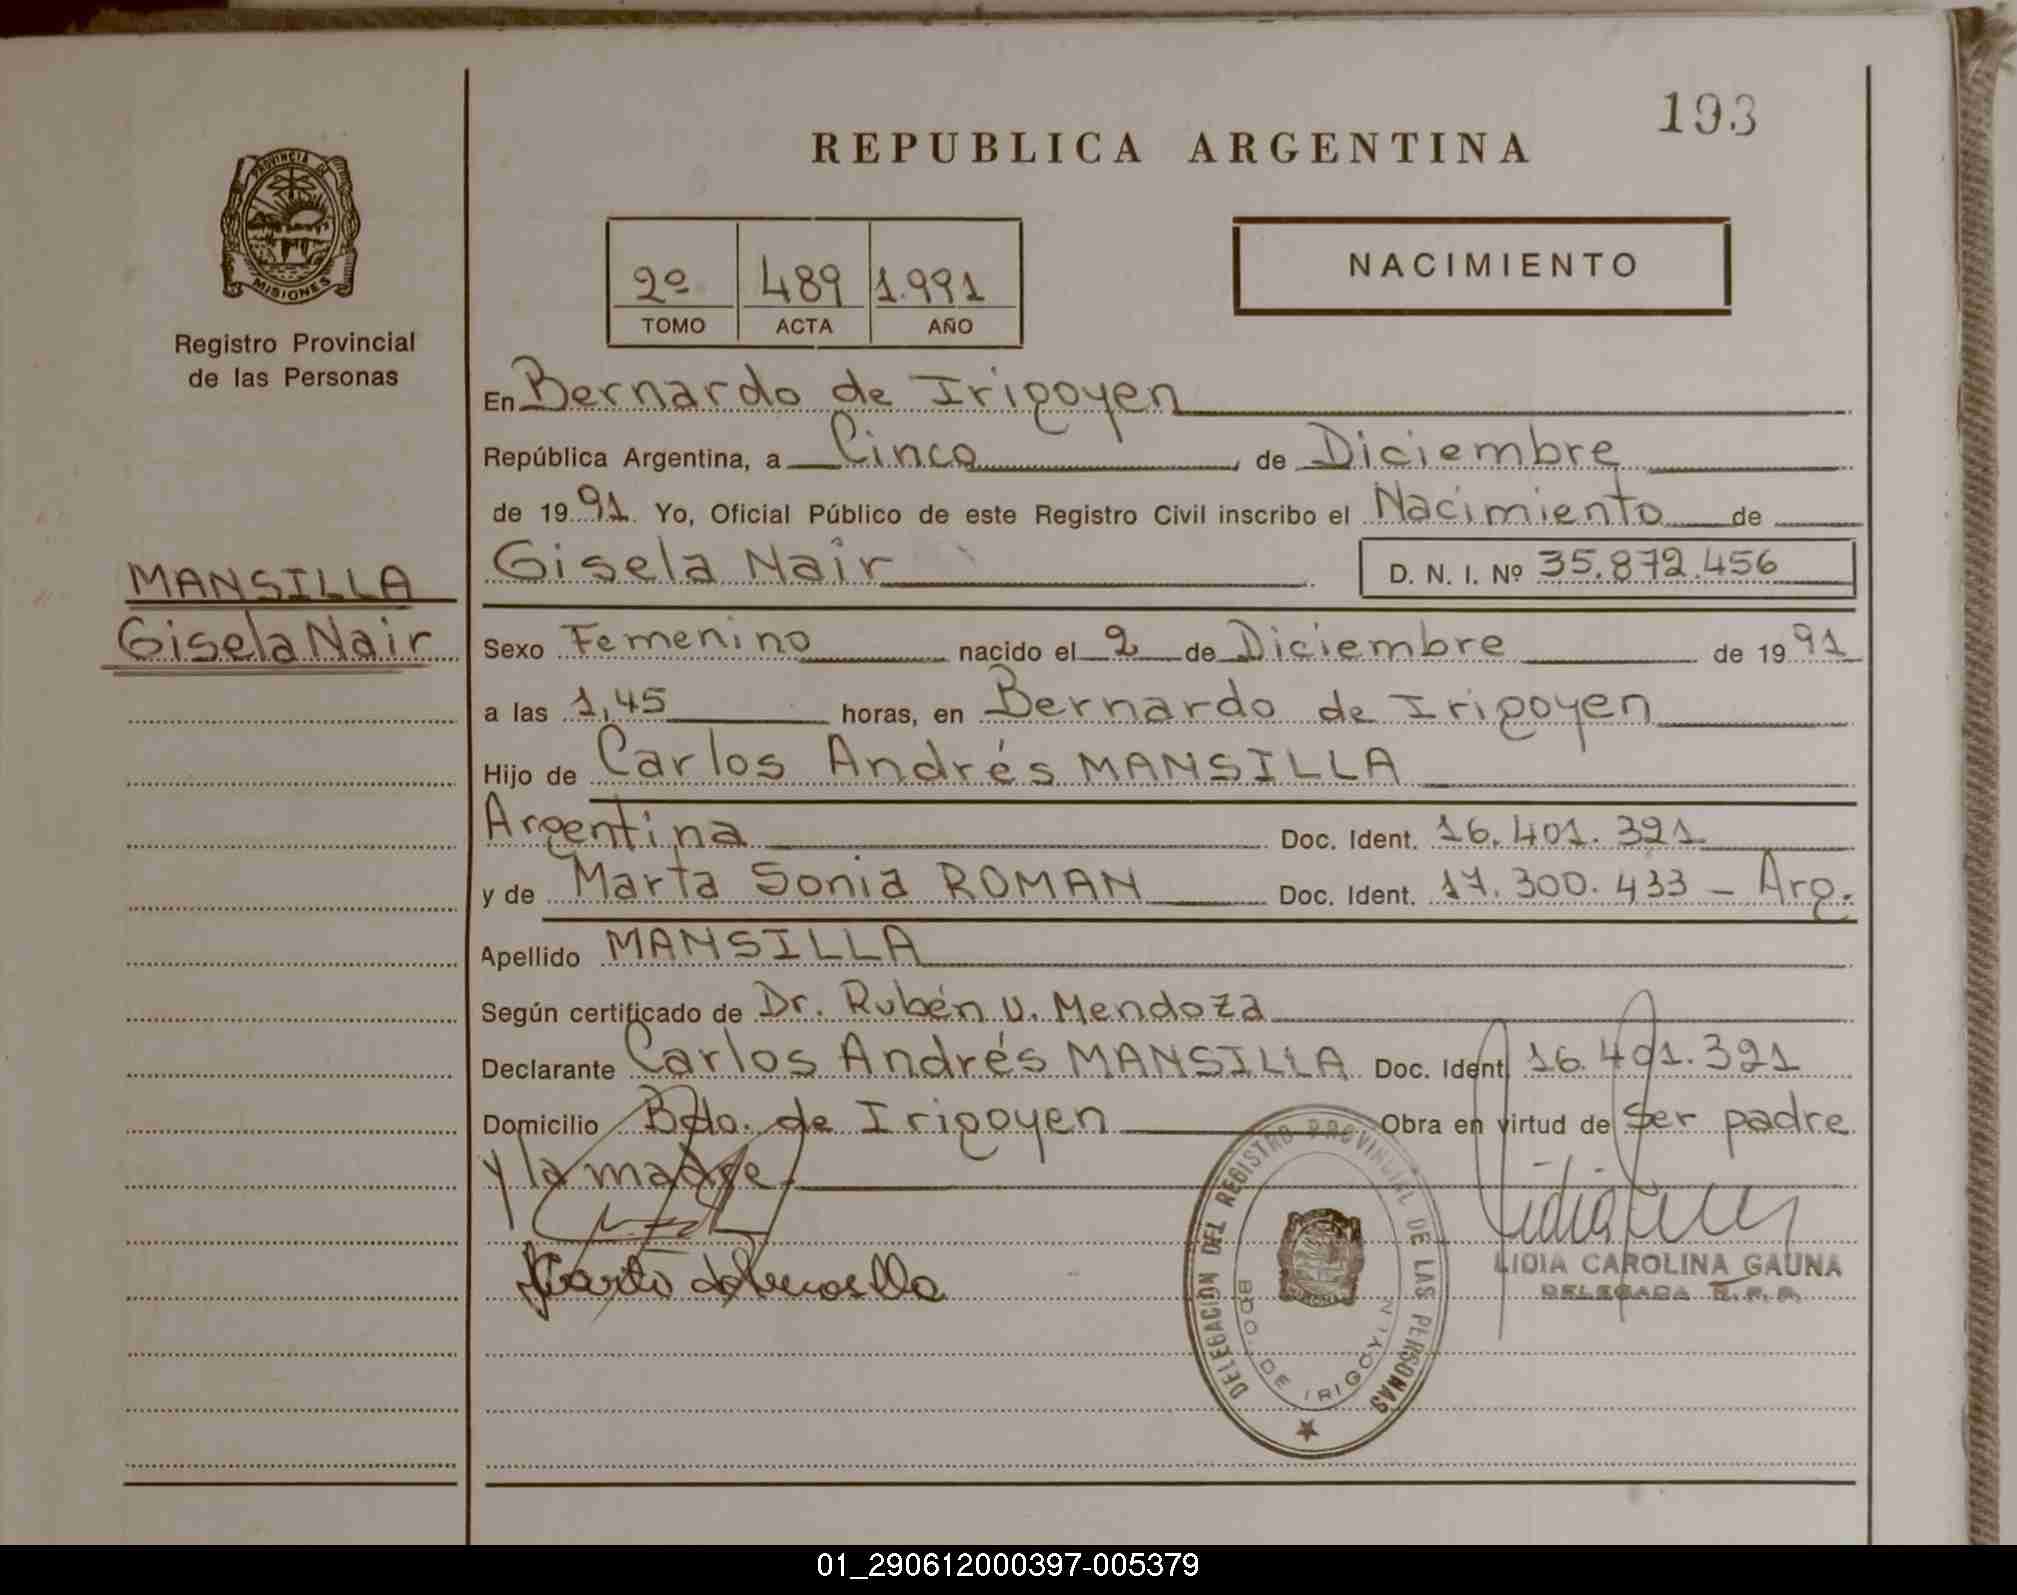 193
REPUBLICA ARGENTINA
PROVINCIA DE
MISIONES
Registro Provincial
de las Personas
2º 489 1.991
TOMO ACTA AÑO
NACIMIENTO
En Bernardo de Irigoyen
República Argentina, a Cinco, de Diciembre
de 1991. Yo, Oficial Público de este Registro Civil inscribo el Nacimiento de
Gisela Nair D. N. I. Nº 35.872.456
MANSILLA
Gisela Nair
Sexo Femenino nacido el 2 de Diciembre de 1991
a las 1,45 horas, en Bernardo de Irigoyen
Hijo de Carlos Andrés MANSILLA
Argentina Doc. Ident. 16.401.321
y de Marta Sonia ROMAN Doc. Ident. 17.300.433 - Arg.
Apellido MANSILLA
Según certificado de Dr. Rubén U. Mendoza
Declarante Carlos Andrés MANSILLA Doc. Ident. 16.401.321
Domicilio Bdo. de Irigoyen Obra en virtud de Ser padre
y la madre.
LIDIA CAROLINA GAUNA
DELEGADA R.P.P.
DELEGACION DEL REGISTRO PROVINCIAL DE LAS PERSONAS
BDO. DE IRIGOYEN
01_290612000397-005379